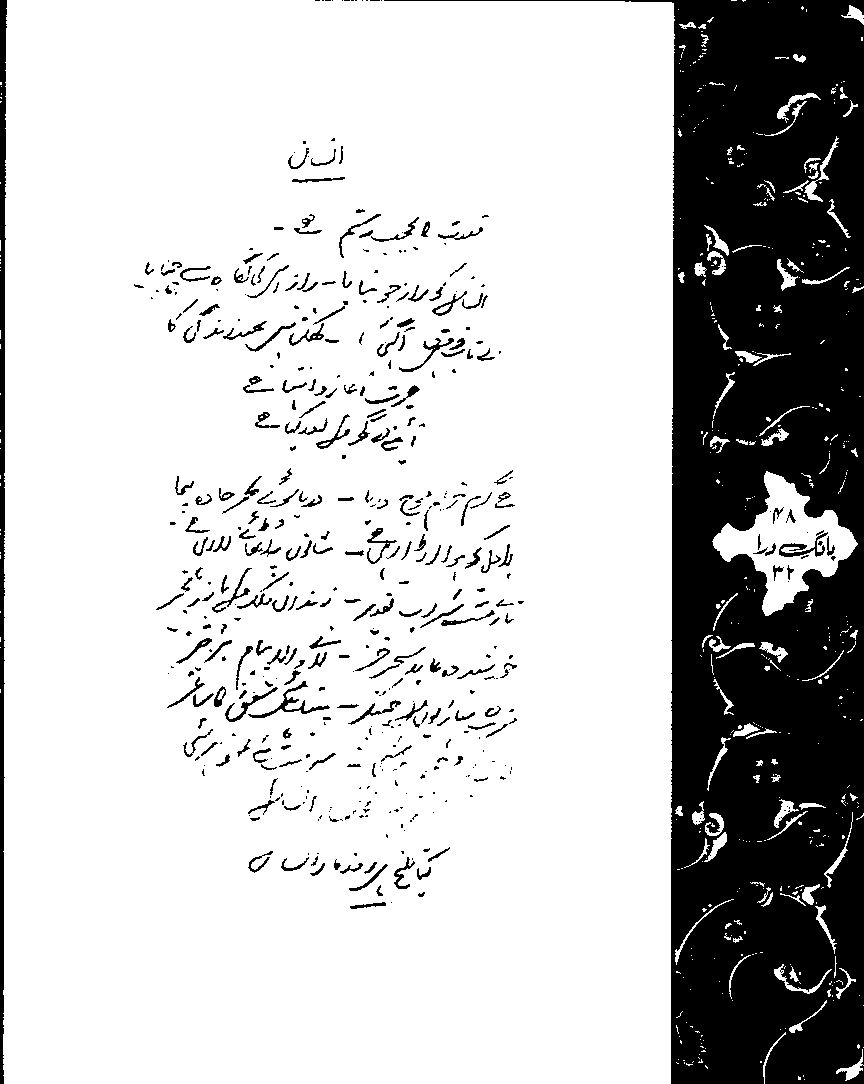 انسان
قدرت کا عجیب یہ ستم ہے -
انسان کو راز جو بنایا - راز اس کی نگاہ سے چھپایا
بے تاب ہے ذوق آگہی کا - کھلتا نہیں بھید زندگی کا
حیرت آغاز و انتہا ہے
آئینے کے گھر میں اور کیا ہے
ہے گرم خرام موج دریا - دریا سوئے بحر جادہ پیما
بادل کو ہوا اڑا رہی ہے - شانوں پہ اٹھائے لا رہی ہے
تارے مست شراب تقدیر - زندان فلک میں پا بہ زنجیر
خورشید وہ عابد سحر خیز - لانے والا پیام برخیز
مغرب کی پہاڑیوں میں چھپ کر - پیتا ہے مے شفق کا ساغر
سرمست مے نمود ہر شے
انساں
کیا تلخ ہے روزگار انساں
۴۸
بانگِ درا
۳۲